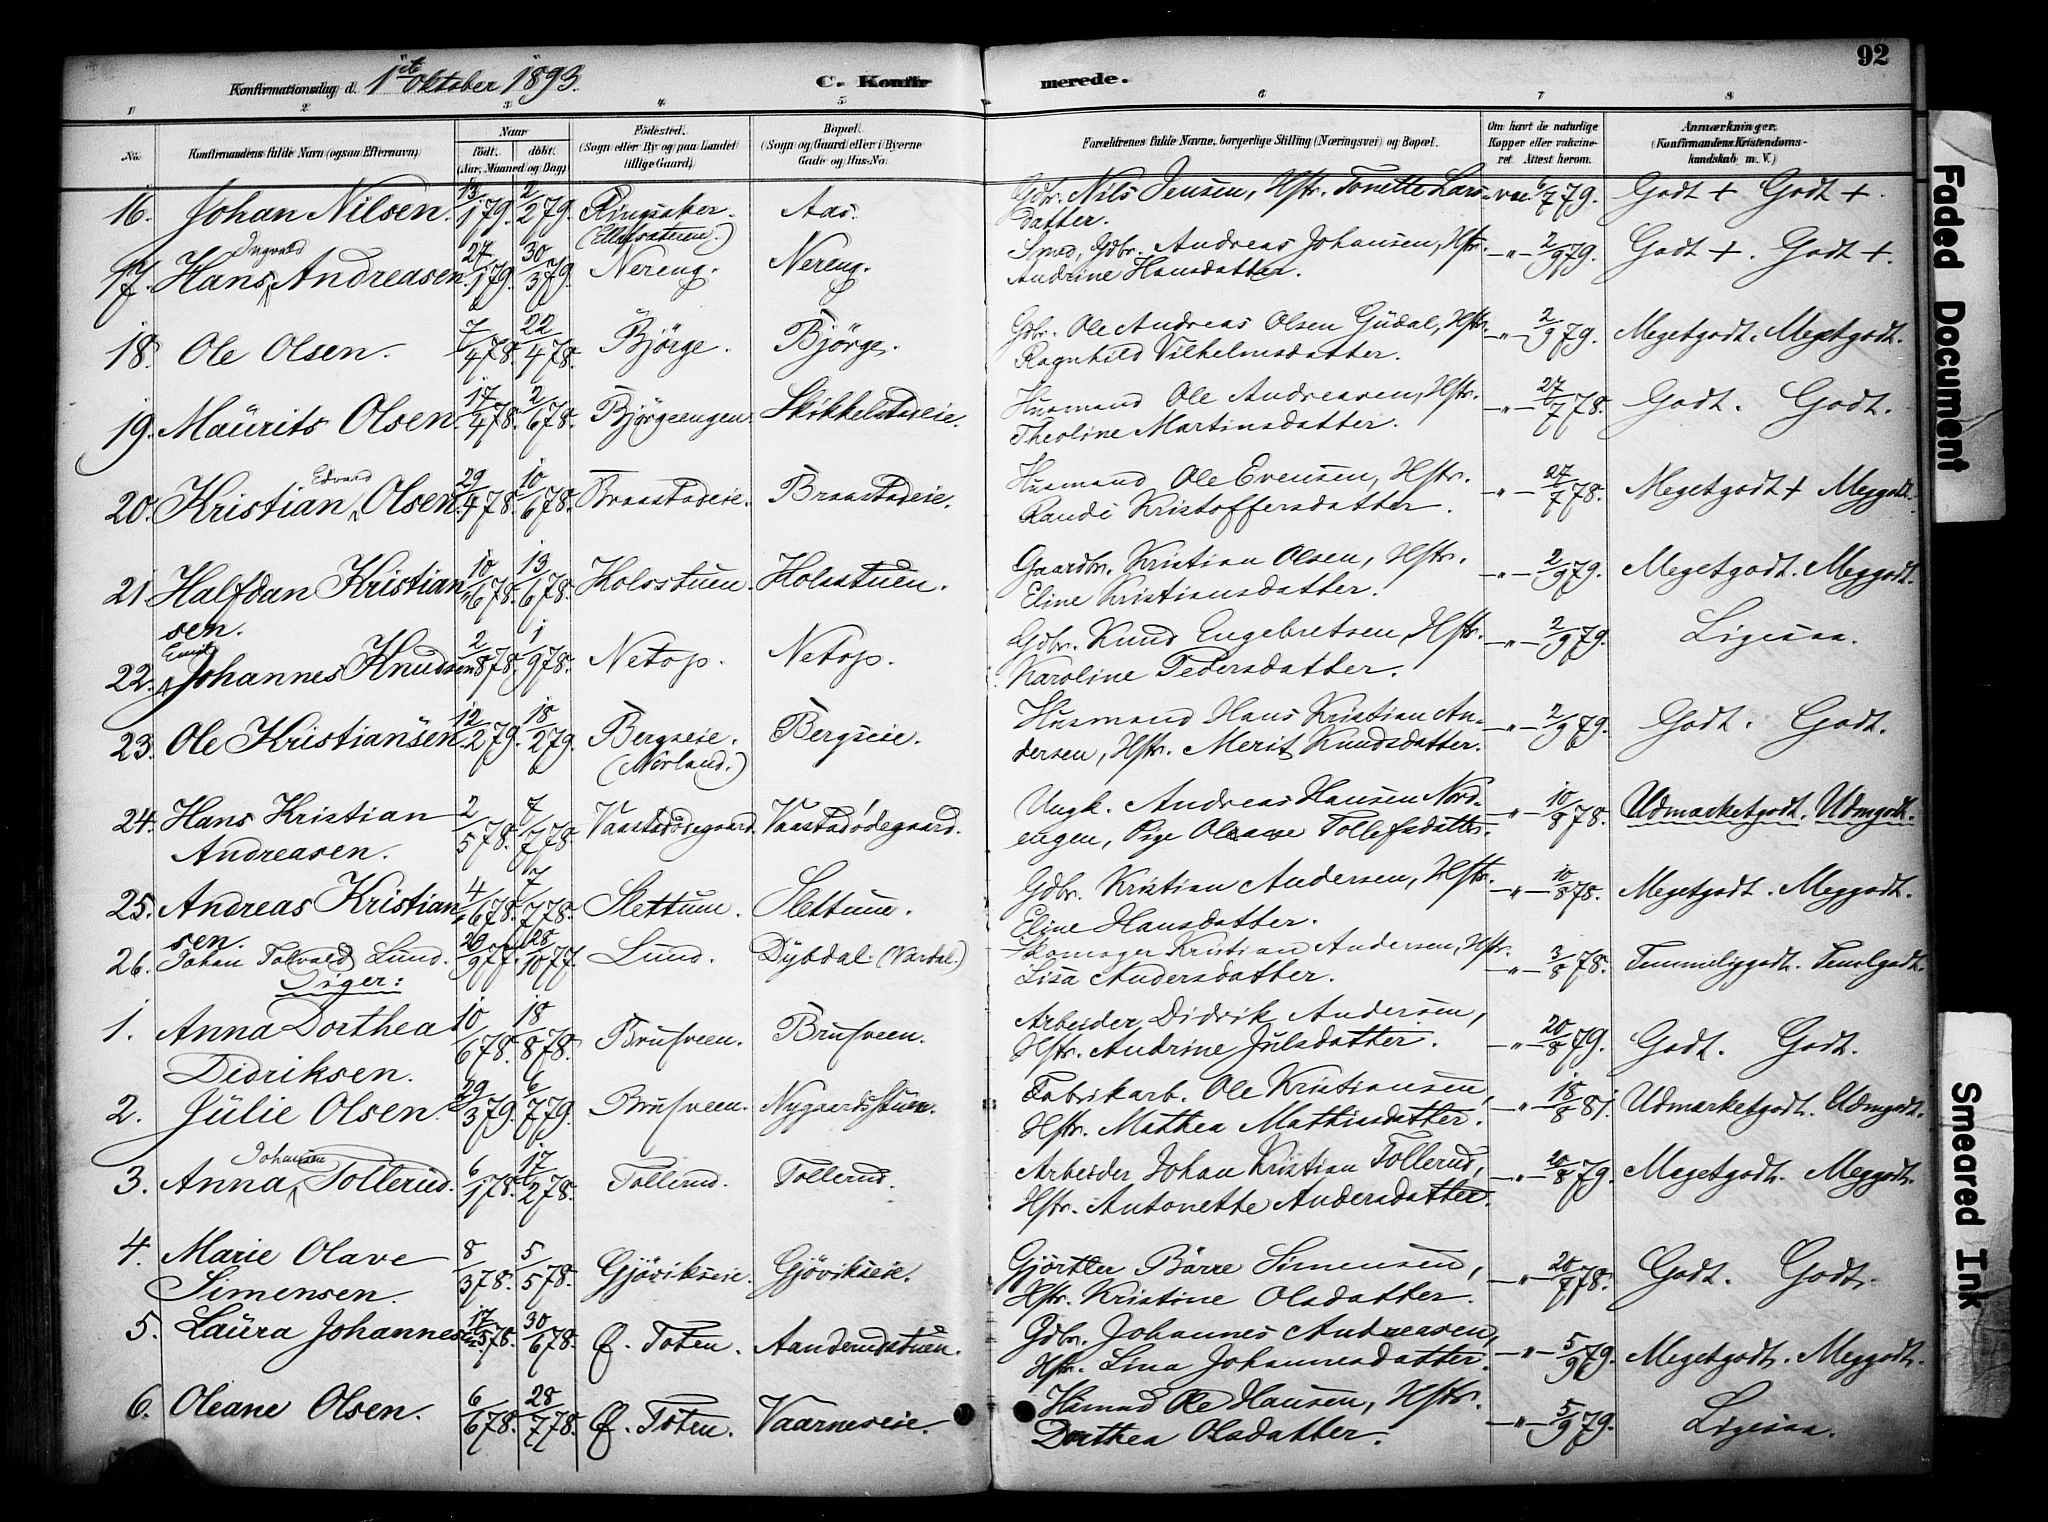 92
Konfirmationsdag d. 1ste Oktober 1893.
C. Konfir merede.
1 2 3 4 5 6 7 8
No. Konfirmandens fulde Navn (ogsaa Efternavn). Naar Født, døbt. (Aar, Maaned og Dag). Fødested. (Sogn eller By og paa Landet tillige Gaard). Bopæl. (Sogn og Gaard eller i Byerne Gade og Hus-No. Forældrenes fulde Navne, borgerlige Stilling (Næringsvei) og Bopæl. Om havt de naturlige Kopper eller vaccineret. Attest herom. Anmærkninger. (Konfirmandens Kristendomskundskab m. V.)
16. Johan Nilsen. 13/1 79. 2/2 79. Ringsaker. Aas. Gdbr. Nils Jensen, Hstr. Tonette Lars- vac. 6/7 79. Godt + Godt +
datter.
17. Hans Ingvald Andreasen. 27/1 79. 30/3 79. Nereng. Nereng. Smed, Gdbr. Andreas Johansen, Hstr. -"- 2/9 79. Godt +. Godt +.
Andrine Hansdatter.
18. Ole Olsen. 7/4 78. 22/4 78. Bjørge. Bjørge. Gdbr. Ole Andreas Olsen Gudal, Hstr. -"- 2/9 79. Megetgodt. Megetgodt.
Ragnhild Vilhelmsdatter.
19. Maurits Olsen. 17/4 78. 2/6 78. Bjørgeengen. Skikkelstadeie. Husmand Ole Andreasen, Hstr. -"- 27/7 78. Godt. Godt.
Theoline Martinsdatter.
20. Kristian Edvard Olsen. 29/4 78. 10/6 78. Braastadeie. Braastadeie. Husmand Ole Evensen, Hstr. -"- 27/7 78. Megetgodt + Meggodt.
Randi Kristoffersdatter.
21. Halfdan Kristian- 10/6 78. 13/6 78. Holsstuen. Holsstuen. Gaardbr. Kristian Olsen, Hstr. -"- 2/9 79. Megetgodt. Meggodt.
sen. Eline Kristiansdatter.
22. Emil Johannes Knudsen 2/8 78. 1/9 78. Netop. Netop. Gdbr. Knud Engebretsen, Hstr. -"- 2/9 79. Ligesaa.
Karoline Pedersdatter.
23. Ole Kristiansen. 12/2 79. 18/2 79. Bergseie. (Nørland.) Bergseie. Husmand Hans Kristian An- -"- 2/9 79. Godt. Godt.
dersen, Hstr. Merit Knudsdatter.
24. Hans Kristian 2/5 78. 7/7 78. Vaastadødegaard. Vaastadødegaard. Ungk. Andreas Hansen Nord- -"- 10/8 78. Udmarketgodt. Udmgodt.
Andreasen. engen, Pige Oleane Tollefsdatter.
25. Andreas Kristian- 4/6 78. 7/7 78. Slettum. Slettum. Gdbr. Kristian Andersen, Hstr. -"- 10/8 78. Megetgodt. Meggodt.
sen. Eline Hansdatter.
26. Johan Tolvald Lund. 20/9 77. 28/10 77. Lund. Dybdal (Vardal.) Skomager Kristian Andersen, Hstr. -"- 3/8 78. Temmeliggodt. Temelgodt.
Lisa Andersdatter.
Piger:
1. Anna Dorthea 10/6 78. 18/8 78. Brusveen. Brusveen. Arbeider Didrik Andersen, -"- 20/8 79. Godt. Godt.
Didriksen. Hstr. Andrine Julsdatter.
2. Julie Olsen. 29/3 79. 6/7 79. Brusveen. Nygaardsstuen. Fabrikarb. Ole Kristiansen, -"- 18/8 81. Udmarketgodt. Udmgodt.
Hstr. Mathea Mathisdatter.
3. Anna Johansen Tollerud. 6/1 78. 17/2 78. Tollerud. Tollerud. Arbeider Johan Kristian Tollerud, -"- 20/8 79. Megetgodt. Meggodt.
Hstr. Antonette Andersdatter.
4. Marie Olave 8/3 78. 5/5 78. Gjøvikseie. Gjøvikseie. Gjørtler Børre Simensen, -"- 20/7 78. Godt. Godt.
Simensen. Hstr. Kristine Olsdatter.
5. Laura Johannesen. 17/5 78. 30/6 78. Ø. Toten. Aanderudstuen. Gdbr. Johannes Andreasen, -"- 5/9 79. Megetgodt. Meggodt.
Hstr. Lina Johannesdatter.
6. Oleane Olsen. 6/6 78. 28/7 78. Ø. Toten. Vaarneseie. Husmd Ole Hansen, Hstr. -"- 5/9 79. Ligesaa.
Dorthea Olsdatter.
Faded Document
Smeared Ink